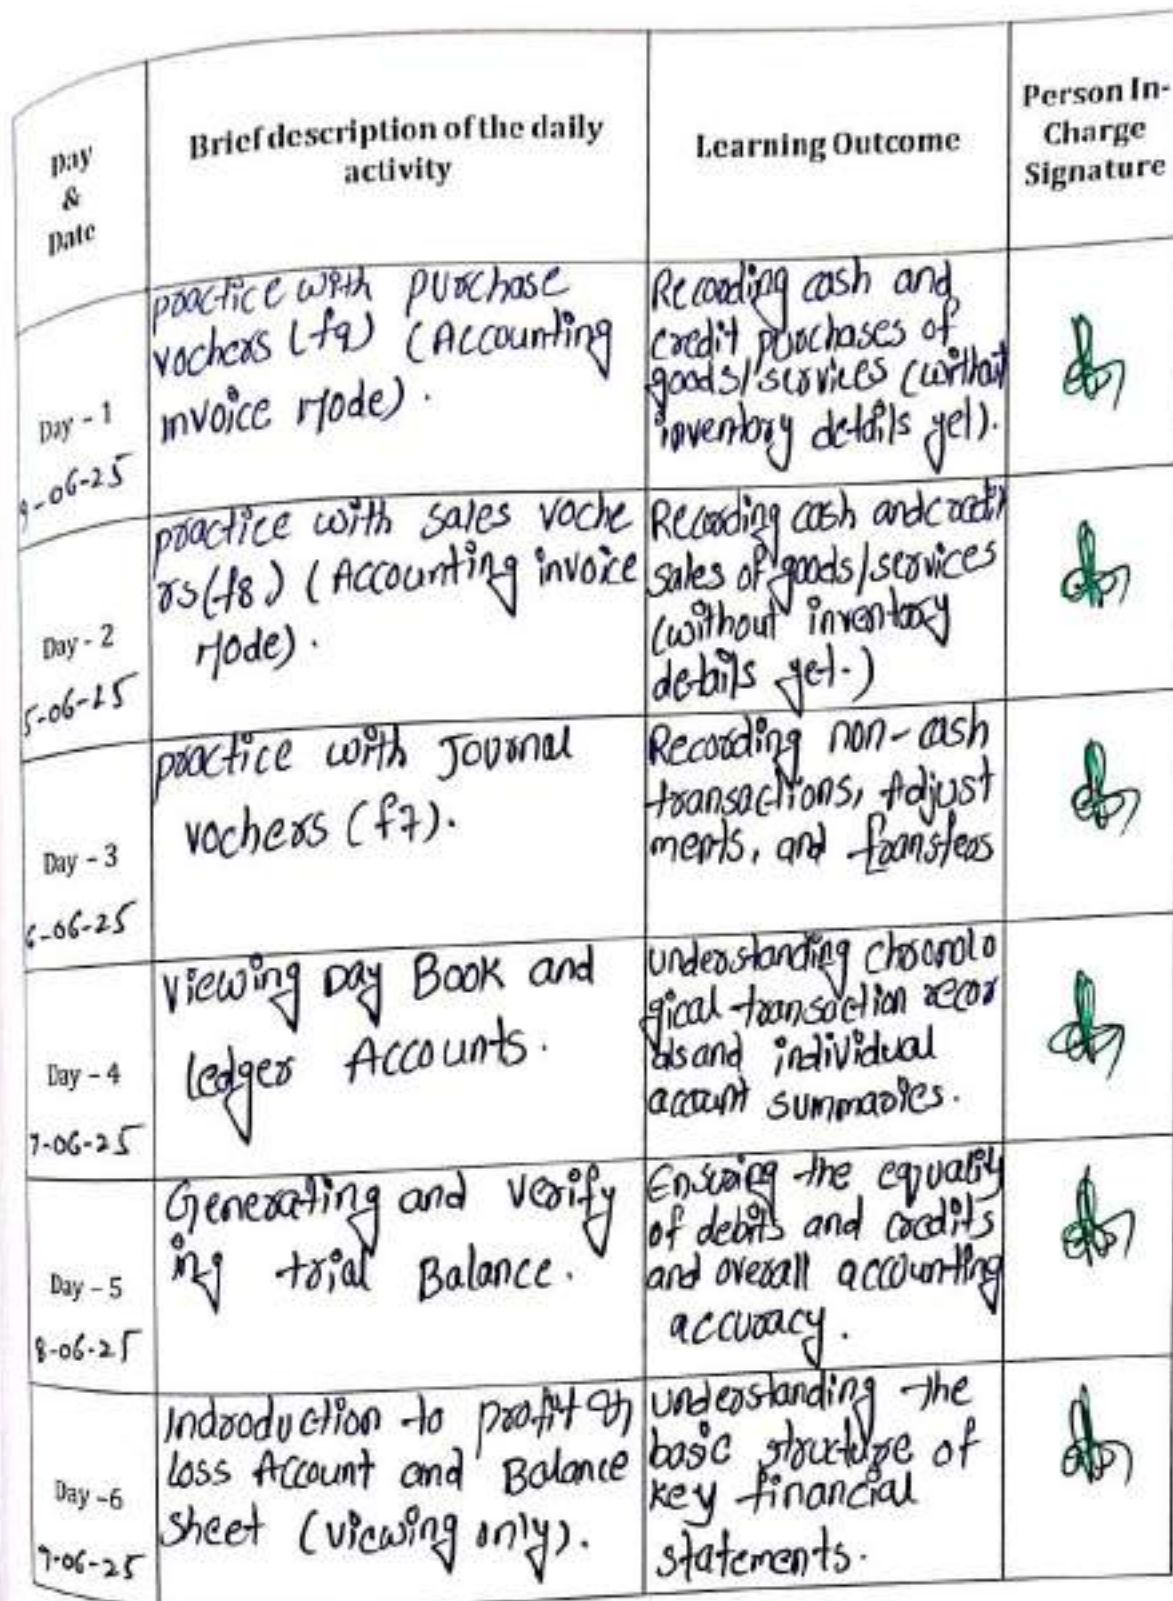 Day
&
Date
Brief description of the daily
activity
Learning Outcome
Person In-
Charge
Signature
Day - 1
9-06-25
practice with purchase
vochers (f9) (Accounting
invoice Mode).
Recording cash and
credit purchases of
goods/services (without
inventory details yet).
Day - 2
5-06-25
practice with sales voche
rs (f8) (Accounting invoice
Mode).
Recording cash and credit
sales of goods/services
(without inventory
details yet.)
Day - 3
6-06-25
practice with Journal
vochers (f7).
Recording non-cash
transactions, Adjust
ments, and transfers
Day - 4
7-06-25
Viewing Day Book and
ledger Accounts.
understanding chronolo
gical transaction recor
ds and individual
account summaries.
Day - 5
8-06-25
Generating and verify
ing trial Balance.
Ensuring the equality
of debits and credits
and overall accounting
accuracy.
Day -6
9-06-25
Indroduction to profit &
loss Account and Balance
sheet (viewing only).
understanding the
basic structure of
key financial
statements.